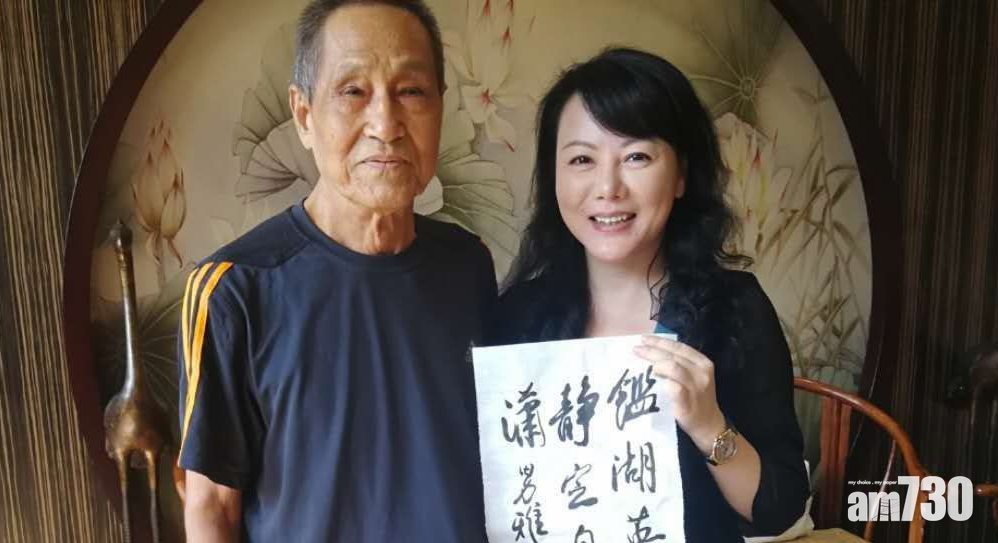 鑑湖英
靜定
瀟男雅
my choice . my paper
am730